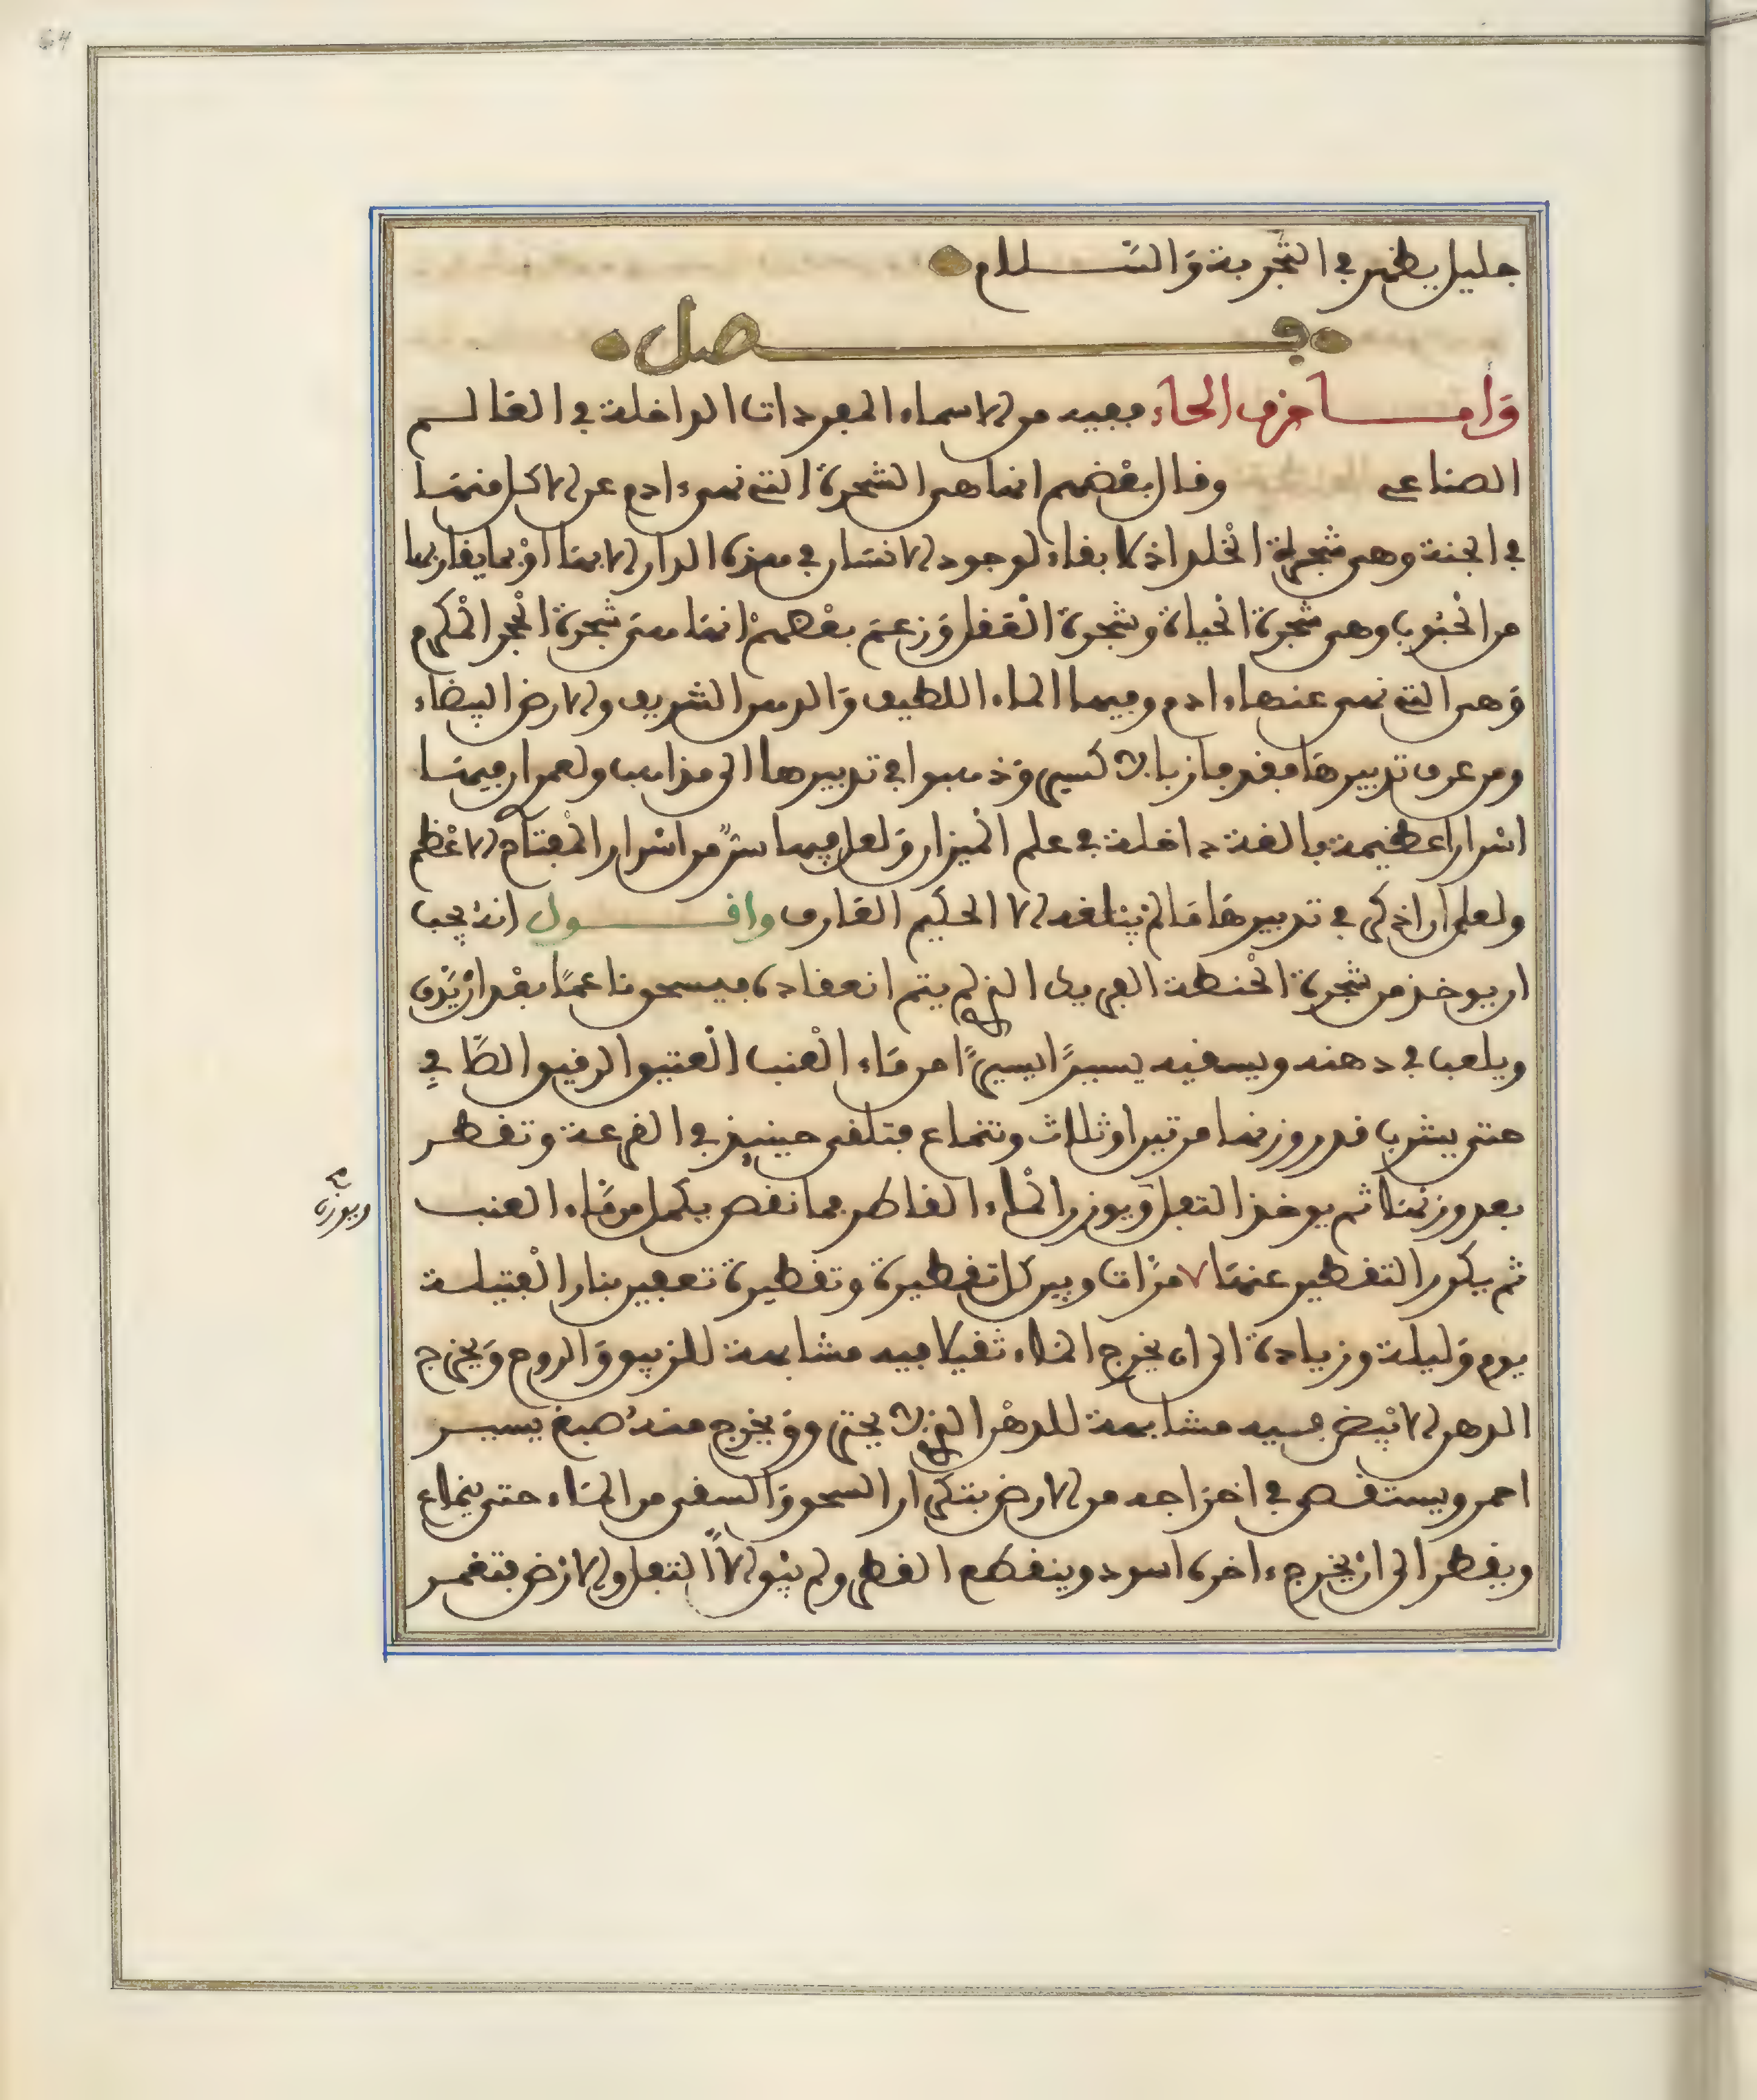 64
جليل يظهر في التجربة والسلام
فصل
وأما حرف الحاء ففيه من الاسماء المفردات الداخلة في العالم
الصناعي وقال بعضهم انها هي الشجرة التي نهي ءادم عن الاكل منها
في الجنة وهي شجرة الخلد اذ لا بقاء لوجود الانسان في هذه الدار الا بها او بما يقاربها
من الحبوب وهي شجرة الحياة وشجرة العقل وزعم بعضهم انها هي شجرة الحجر المكرم
وهي التي نهي عنها ءادم وفيها الماء اللطيف والدهن الشريف والارض البيضاء
ومن عرف تدبيرها فقد فاز بالاكسير وذهبوا في تدبيرها الى مذاهب ولعمر ان فيها
اسرارا عظيمة بالغة داخلة في علم الميزان ولعل فيها سر من اسرار المفتاح الاعظم
ولعلي ان اذكر في تدبيرها ما لم يبلغه الا الحكيم العارف واقول انه يجب
ان يوخذ من شجرة الحنطة الفريك الذي لم يتم انعقاده فيسحق ناعما بعد ان يدق
ويلعب في دهنه ويسقيه يسيرا يسيرا من ماء العنب العتيق الرقيق الصافي
حتى يشرب قدر وزنها مرتين او ثلاث وتنماع فتلقى حينيذ في القرعة وتقطر
بعد وزنها ثم يوخذ التفل ويوزن الماء القاطر فما نقص يكمل من ماء العنب
ويوزن
ثم يكرر التقطير عنها ٧ مرات وبين كل تقطيرة وتقطيرة تعفين بنار الفتيلة
يوم وليلة وزيادة الى ان يخرج الماء ثقيلا فيه مشابهة للزيبق والروح ويخرج
الدهن الابيض فيه مشابهة للدهن الذي لا يحترق ويخرج منه صبغ يسير
احمر ويستقصى في اخراجه من الارض بتكرار السحق والسقي من الماء حتى ينماع
ويقطر الى ان يخرج ءاخره اسود وينقطع القطر ولم يبق الا التفل والارض فتغمر